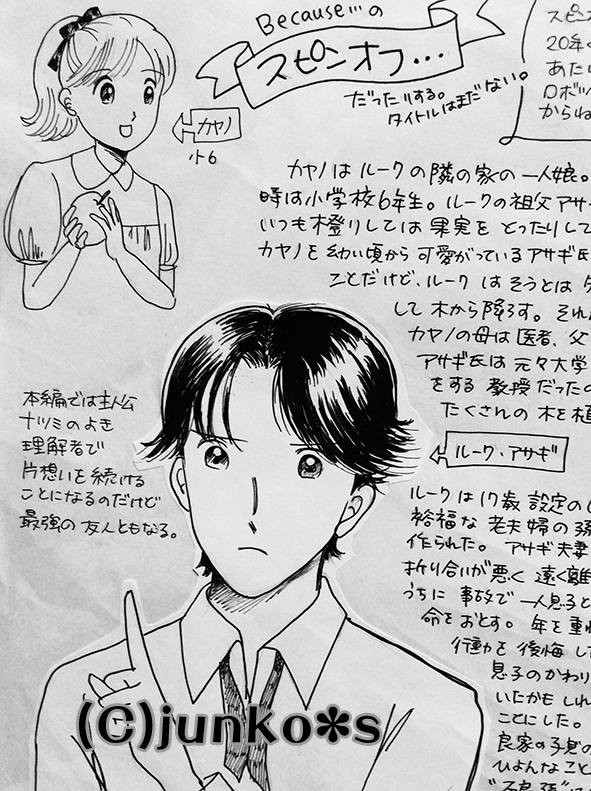 Because…の
スピンオフ…
だったりする。
タイトルはまだない。
スピン
20年く
あたい
ロボッ
からね
カヤノ
小6
カヤノはルークの隣の家の一人娘。
時は小学校6年生。ルークの祖父アサ
いつも木登りしては果実をとったりして
カヤノを幼い頃から可愛がっているアサギ氏
ことだけど、ルークはそうとは
して木から降ろす。それ
カヤノの母は医者、父
アサギ氏は元々大学
をする教授だったの
たくさんの木を植
本編では主人公
ナツミのよき
理解者で
片想いを続ける
ことになるのだけど
最強の友人ともなる。
ルーク・アサギ
ルークは17歳設定の
裕福な老夫婦の孫
作られた。アサギ夫妻
折り合いが悪く遠く離
うちに事故で一人息子と
命をおとす。年を重ね
行動を後悔し
息子のかわり
いたかもしれ
ことにした。
良家の子息の
ひょんなこと
(C)junko✽s